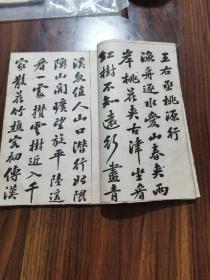 王右丞桃源行
漁舟逐水愛山春夾兩
岸桃花夾古津坐看
紅樹不知遠行盡青
溪忽值人山口潛行始隈
隩山開曠望旋平陸遙
看一處攢雲樹近入千
家散花竹樵客初傳漢